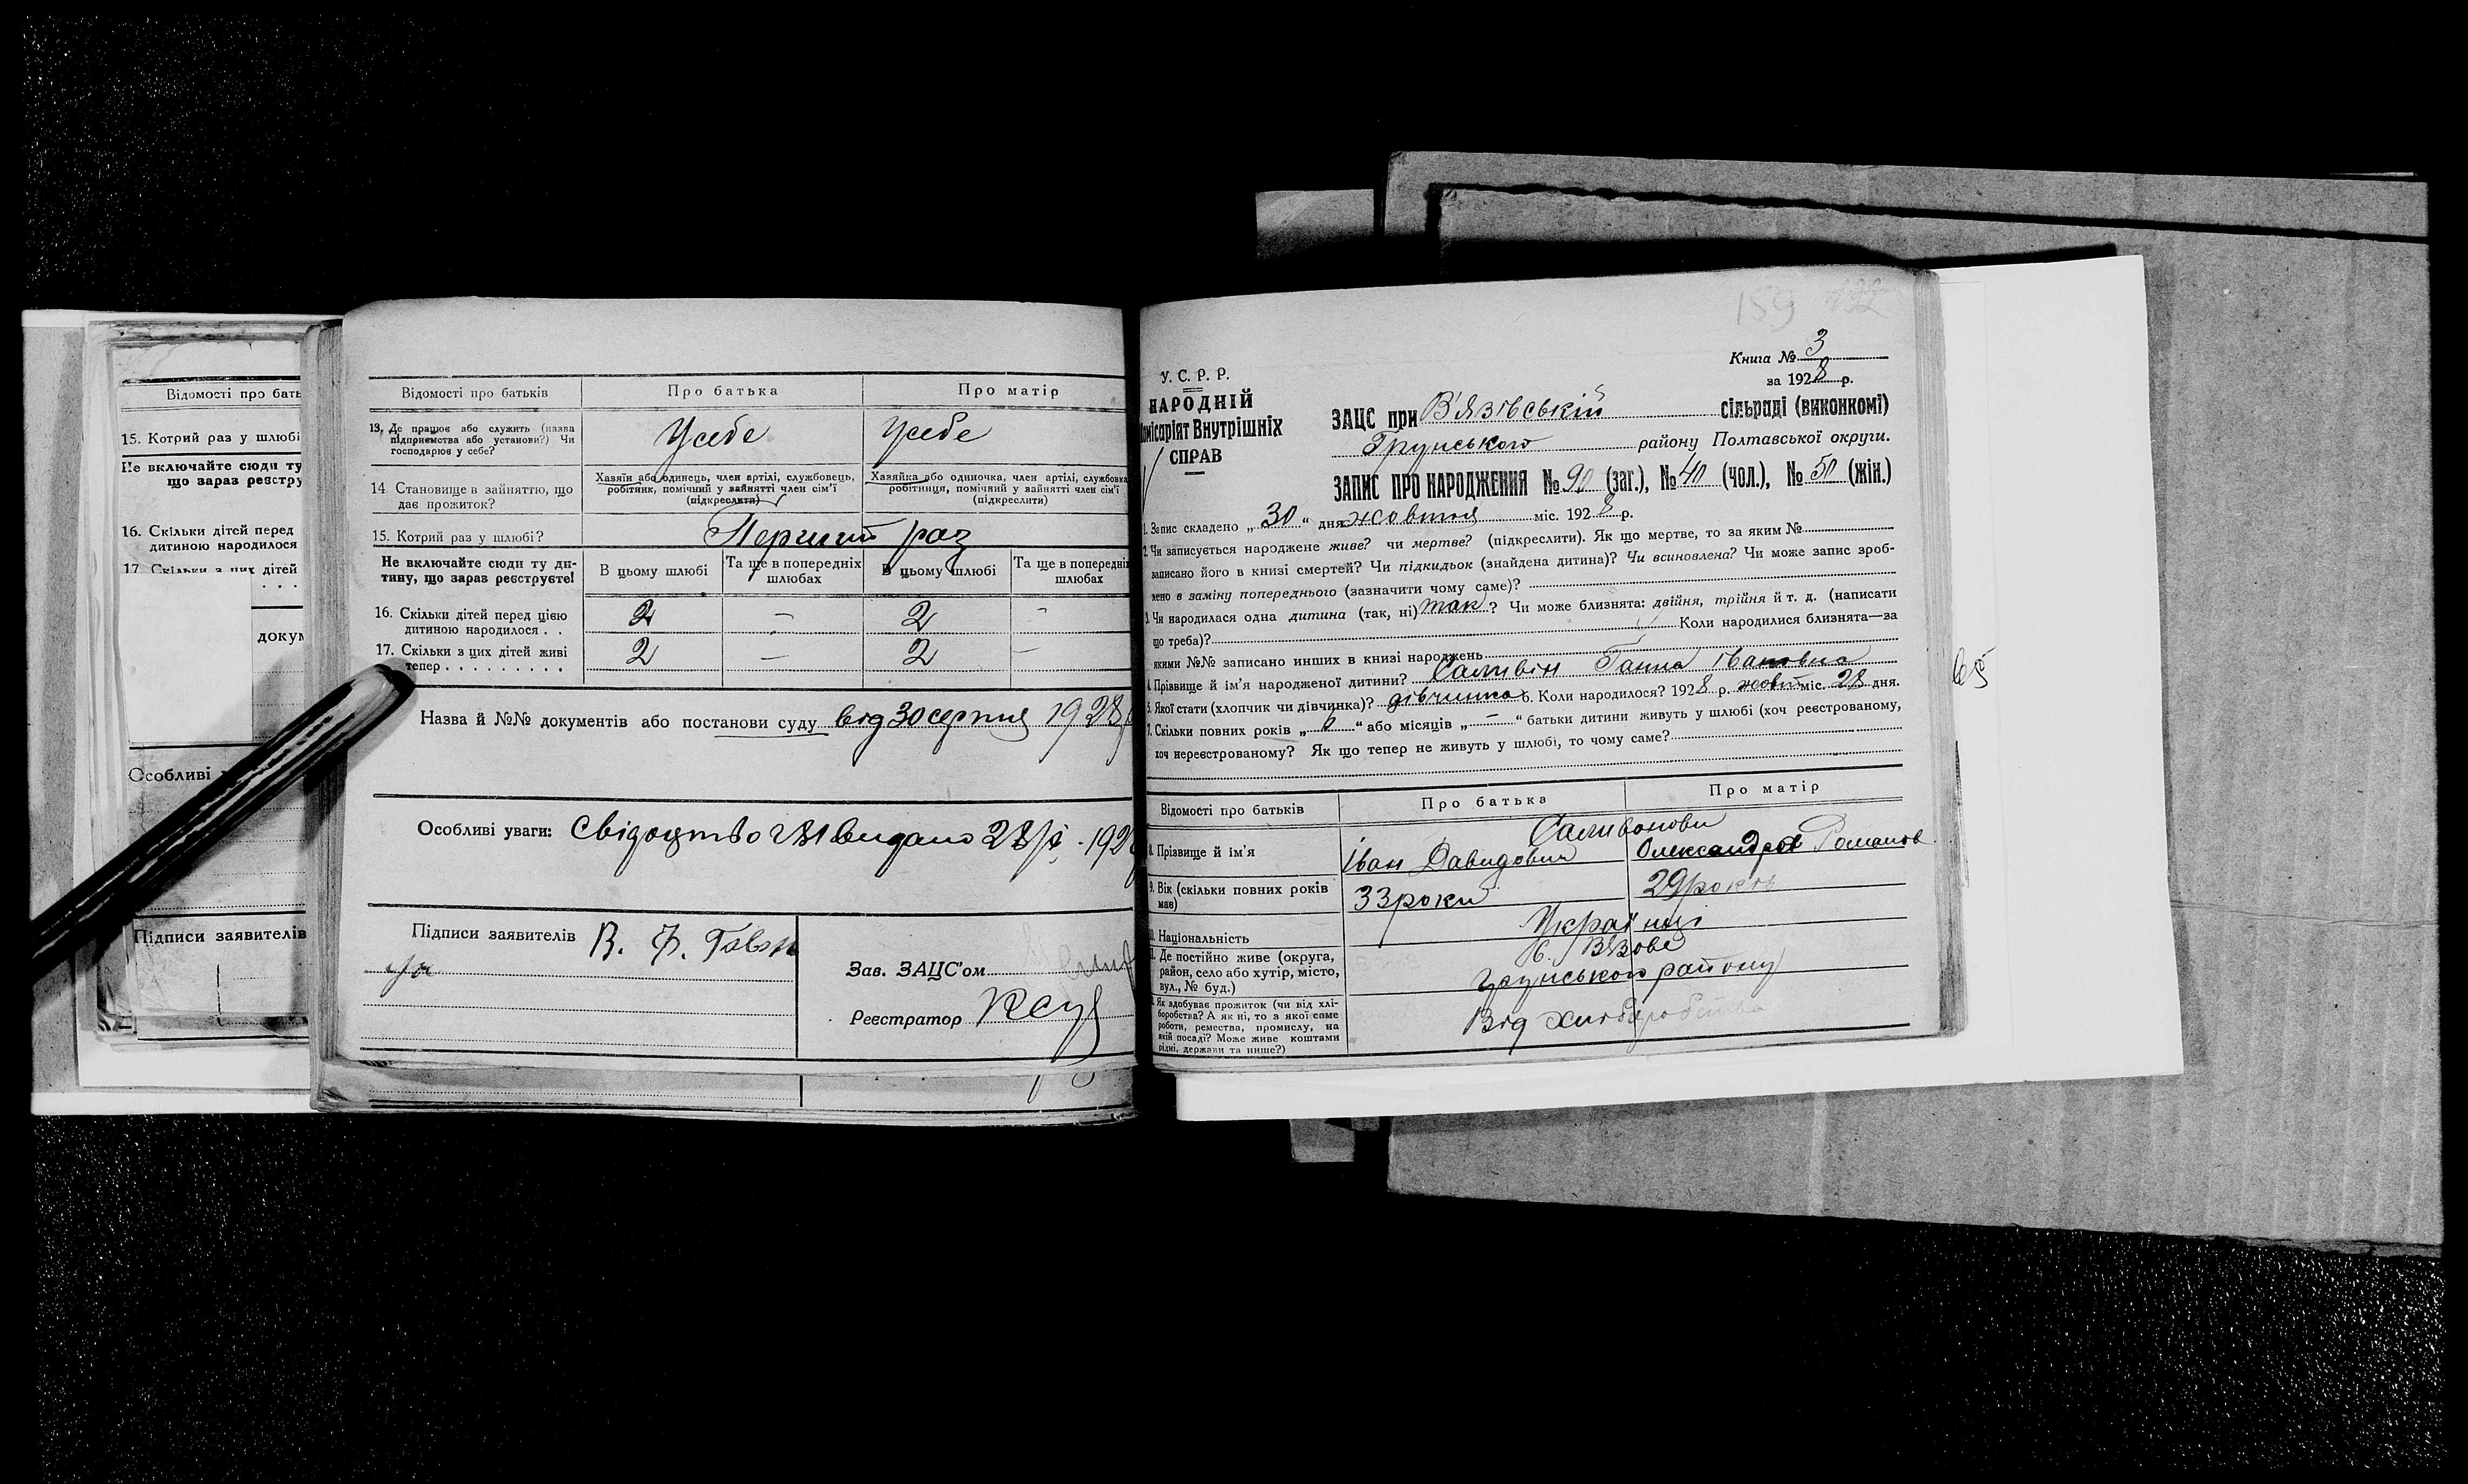 Відомості про бать
15. Котрий раз у шлюбі
Не включайте сюди ту
що зараз реєстру
16. Скільки дітей перед
дитиною народилося
17. Скільки з цих дітей
докум
Особливі
Підписи заявителів
Відомості про батьків Про батька Про матір
13. Де працює або служить (назва
підприємства або установи?) Чи
господарює у себе?
У себе У себе
14. Становище в зайняттю, що
дає прожиток?
Хазяїн або одинець, член артілі, службовець,
робітник, помічний у зайнятті член сім'ї
(підкреслити)
Хазяйка або одиночка, член артілі, службовка
робітниця, помічний у зайнятті член сім'ї
(підкреслити)
15. Котрий раз у шлюбі? Перший раз
Не включайте сюди ту ди-
тину, що зараз реєструєте!
В цьому шлюбі Та ще в попередніх
шлюбах
В цьому шлюбі Та ще в попередніх
шлюбах
16. Скільки дітей перед цією
дитиною народилося . . 2 – 2 –
17. Скільки з цих дітей живі
тепер . . . . . . . . . 2 – 2 –
Назва й №№ документів або постанови суду від 30 серпня 1928
Особливі уваги: Свідоцтво видано 28/ 192
Підписи заявителів В. Ф.
Зав. ЗАЦС'ом
Реєстратор
159
У. С. Р. Р.
НАРОДНІЙ
Комісаріят Внутрішніх
СПРАВ
Книга № 3
за 1928 р.
ЗАЦС при В'язівській сільраді (виконкомі)
Грунського району Полтавської округи.
ЗАПИС ПРО НАРОДЖЕННЯ № 90 (заг.), № 40 (чол.), № 50 (жін.)
1. Запис складено „ 30 “ дня жовтня міс. 1928 р.
2. Чи записується народжене живе? чи мертве? (підкреслити). Як що мертве, то за яким №
записано його в книзі смертей? Чи підкидьок (знайдена дитина)? Чи всиновлена? Чи може запис зроб-
лено в заміну попереднього (зазначити чому саме)?
3. Чи народилася одна дитина (так, ні) так ? Чи може близнята: двійня, трійня й т. д. (написати
що треба)? Коли народилися близнята—за
якими №№ записано инших в книзі народжень
4. Прізвище й ім'я народженої дитини? Саливін Ганна Івановна
5. Якої стати (хлопчик чи дівчинка)? дівчинка 6. Коли народилося? 1928 р. жовт міс. 28 дня.
7. Скільки повних років „ 6 “ або місяців „ – “ батьки дитини живуть у шлюбі (хоч реєстрованому,
хоч нереєстрованому? Як що тепер не живуть у шлюбі, то чому саме?
Відомості про батьків Про батька Про матір
Саливонови
8. Прізвище й ім'я Іван Давидович Олександра Романов
9. Вік (скільки повних років
має) 33 роки 29 років
10. Національність Українці
11. Де постійно живе (округа,
район, село або хутір, місто,
вул., № буд.)
с. В'язове
Грунського району
12. Як здобуває прожиток (чи від хлі-
боробства? А як ні, то з якої саме
роботи, ремества, промислу, на
якій посаді? Може живе коштами
рідні, держави та инше?)
Від хліборобства